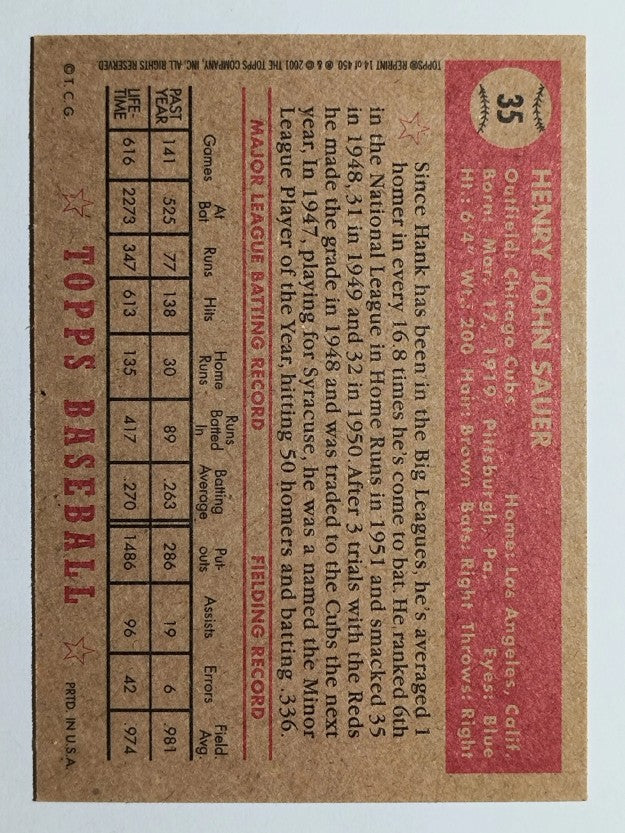 35
HENRY JOHN SAUER
Outfield: Chicago Cubs Home: Los Angeles, Calif.
Born: Mar. 17, 1919, Pittsburgh, Pa, Eyes: Blue
Ht.: 6'4" Wt.: 200 Hair: Brown Bats: Right Throws: Right
Since Hank has been in the Big Leagues, he's averaged 1
homer in every 16.8 times he's come to bat. He ranked 6th
in the National League in Home Runs in 1951 and smacked 35
in 1948, 31 in 1949 and 32 in 1950 After 3 trials with the Reds
he made the grade in 1948 and was traded to the Cubs the next
year. In 1947, playing for Syracuse, he was a named the Minor
League Player of the Year, hitting 50 homers and batting .336.
MAJOR LEAGUE BATTING RECORD FIELDING RECORD
Games At Bat Runs Hits Home Runs Runs Batted In Batting Average Put-outs Assists Errors Field. Avg.
PAST YEAR 141 525 77 138 30 89 .263 286 19 6 .981
LIFE-TIME 616 2273 347 613 135 417 .270 1486 96 42 .974
TOPPS BASEBALL
©T.C.G. PRTD. IN U.S.A.
TOPPS® REPRINT 14 of 450 ® & © 2001 THE TOPPS COMPANY, INC. ALL RIGHTS RESERVED